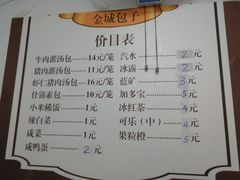 金城包子
价目表
牛肉灌汤包——14元/笼 汽水——2元
猪肉灌汤包——11元/笼 冰露——2元
虾仁灌汤包——16元/笼 蓝矿——3元
什锦素包——10元/笼 加多宝——5元
小米稀饭——1元 冰红茶——4元
辣白菜——1元 可乐(中)——4元
咸菜——1元 果粒橙——5元
咸鸭蛋——2元